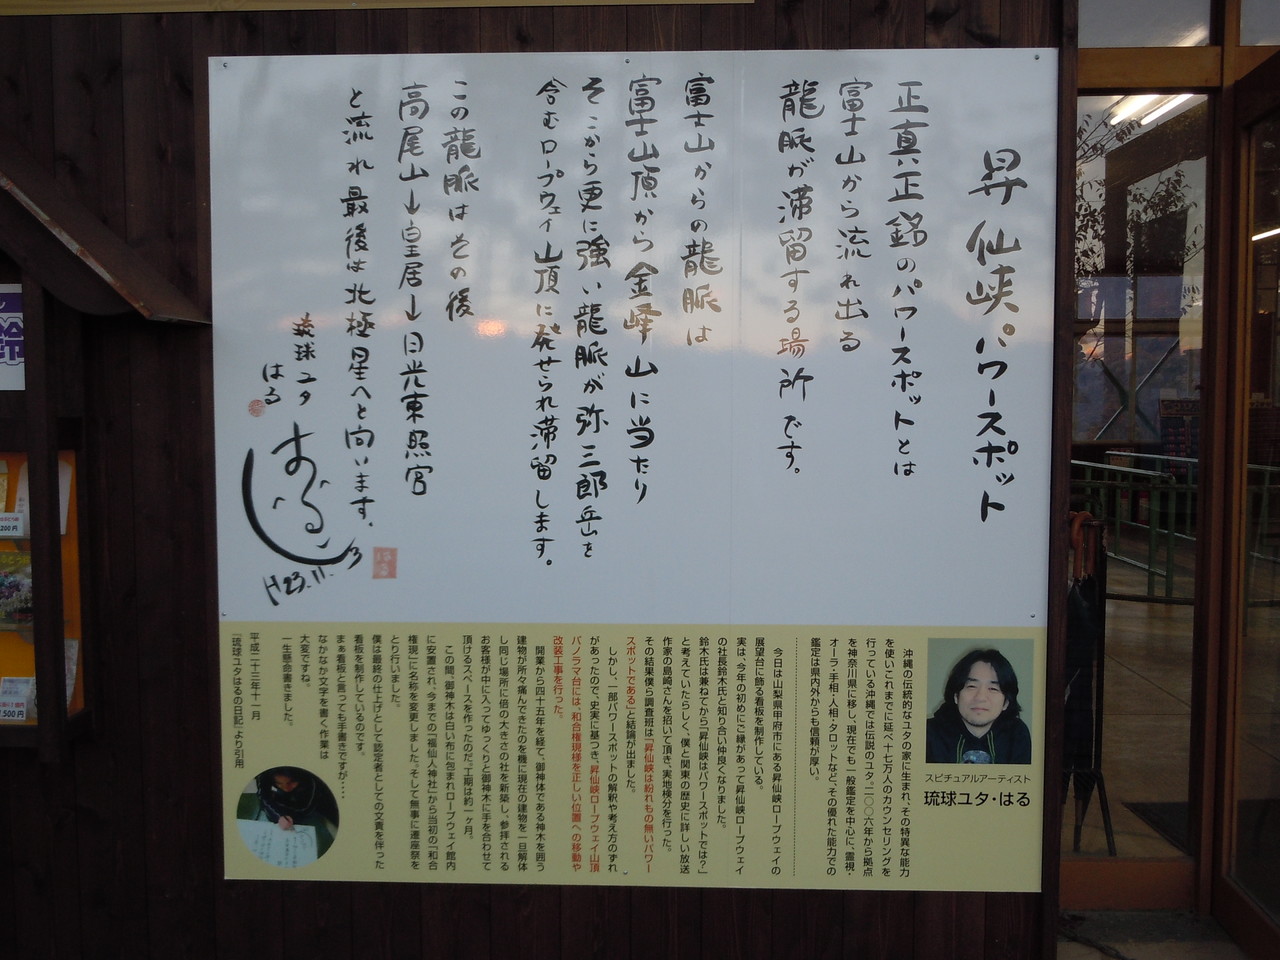 昇仙峡パワースポット
正真正銘のパワースポットとは
富士山から流れ出る
龍脈が滞留する場所です。
富士山からの龍脈は
富士山頂から金峰山に当たり
そこから更に強い龍脈が弥三郎岳を
含むロープウェイ山頂に発せられ滞留します。
この龍脈はその後
高尾山→皇居→日光東照宮
と流れ最後は北極星へと向います。
琉球ユタ
はる
はる
H23.11.
はる
スピチュアルアーティスト
琉球ユタ・はる
沖縄の伝統的なユタの家に生まれ、その特異な能力
を使いこれまでに延べ十七万人のカウンセリングを
行っている沖縄では伝説のユタ。二〇〇六年から拠点
を神奈川県に移し、現在でも一般鑑定を中心に、霊視・
オーラ・手相・人相・タロットなど、その優れた能力での
鑑定は県内外からも信頼が厚い。
今日は山梨県甲府市にある昇仙峡ロープウェイの
展望台に飾る看板を制作している。
実は、今年の初めにご縁があって昇仙峡ロープウェイ
の社長鈴木氏と知り合い仲良くなりました。
鈴木氏は兼ねてから「昇仙峡はパワースポットでは?」
と考えていたらしく、僕と関東の歴史に詳しい放送
作家の島崎さんを招いて頂き、実地検分を行った。
その結果僕ら調査班は「昇仙峡は紛れもの無いパワー
スポットである」と結論が出ました。
しかし、一部パワースポットの解釈や考え方のずれ
があったので、史実に基づき、昇仙峡ロープウェイ山頂
パノラマ台には、和合権現様を正しい位置への移動や
改装工事を行った。
開業から四十五年を経て、御神体である神木を囲う
建物が所々痛んできたのを機に現在の建物を一旦解体
し同じ場所に倍の大きさの社を新築し、参拝される
お客様が中に入ってゆっくりと御神木に手を合わせて
頂けるスペースを作ったのだ。工期は約一ヶ月。
この間、御神木は白い布に包まれロープウェイ館内
に安置され、今までの「福仙人神社」から当初の「和合
権現」に名称を変更しました。そして無事に遷座祭を
とり行いました。
僕は最終の仕上げとして認定者としての文責を伴った
看板を制作しているのです。
まぁ看板と言っても手書きですが‥‥
なかなか文字を書く作業は
大変ですね。
一生懸命書きました。
平成二十三年十一月
『琉球ユタはるの日記』より引用
200円
500円